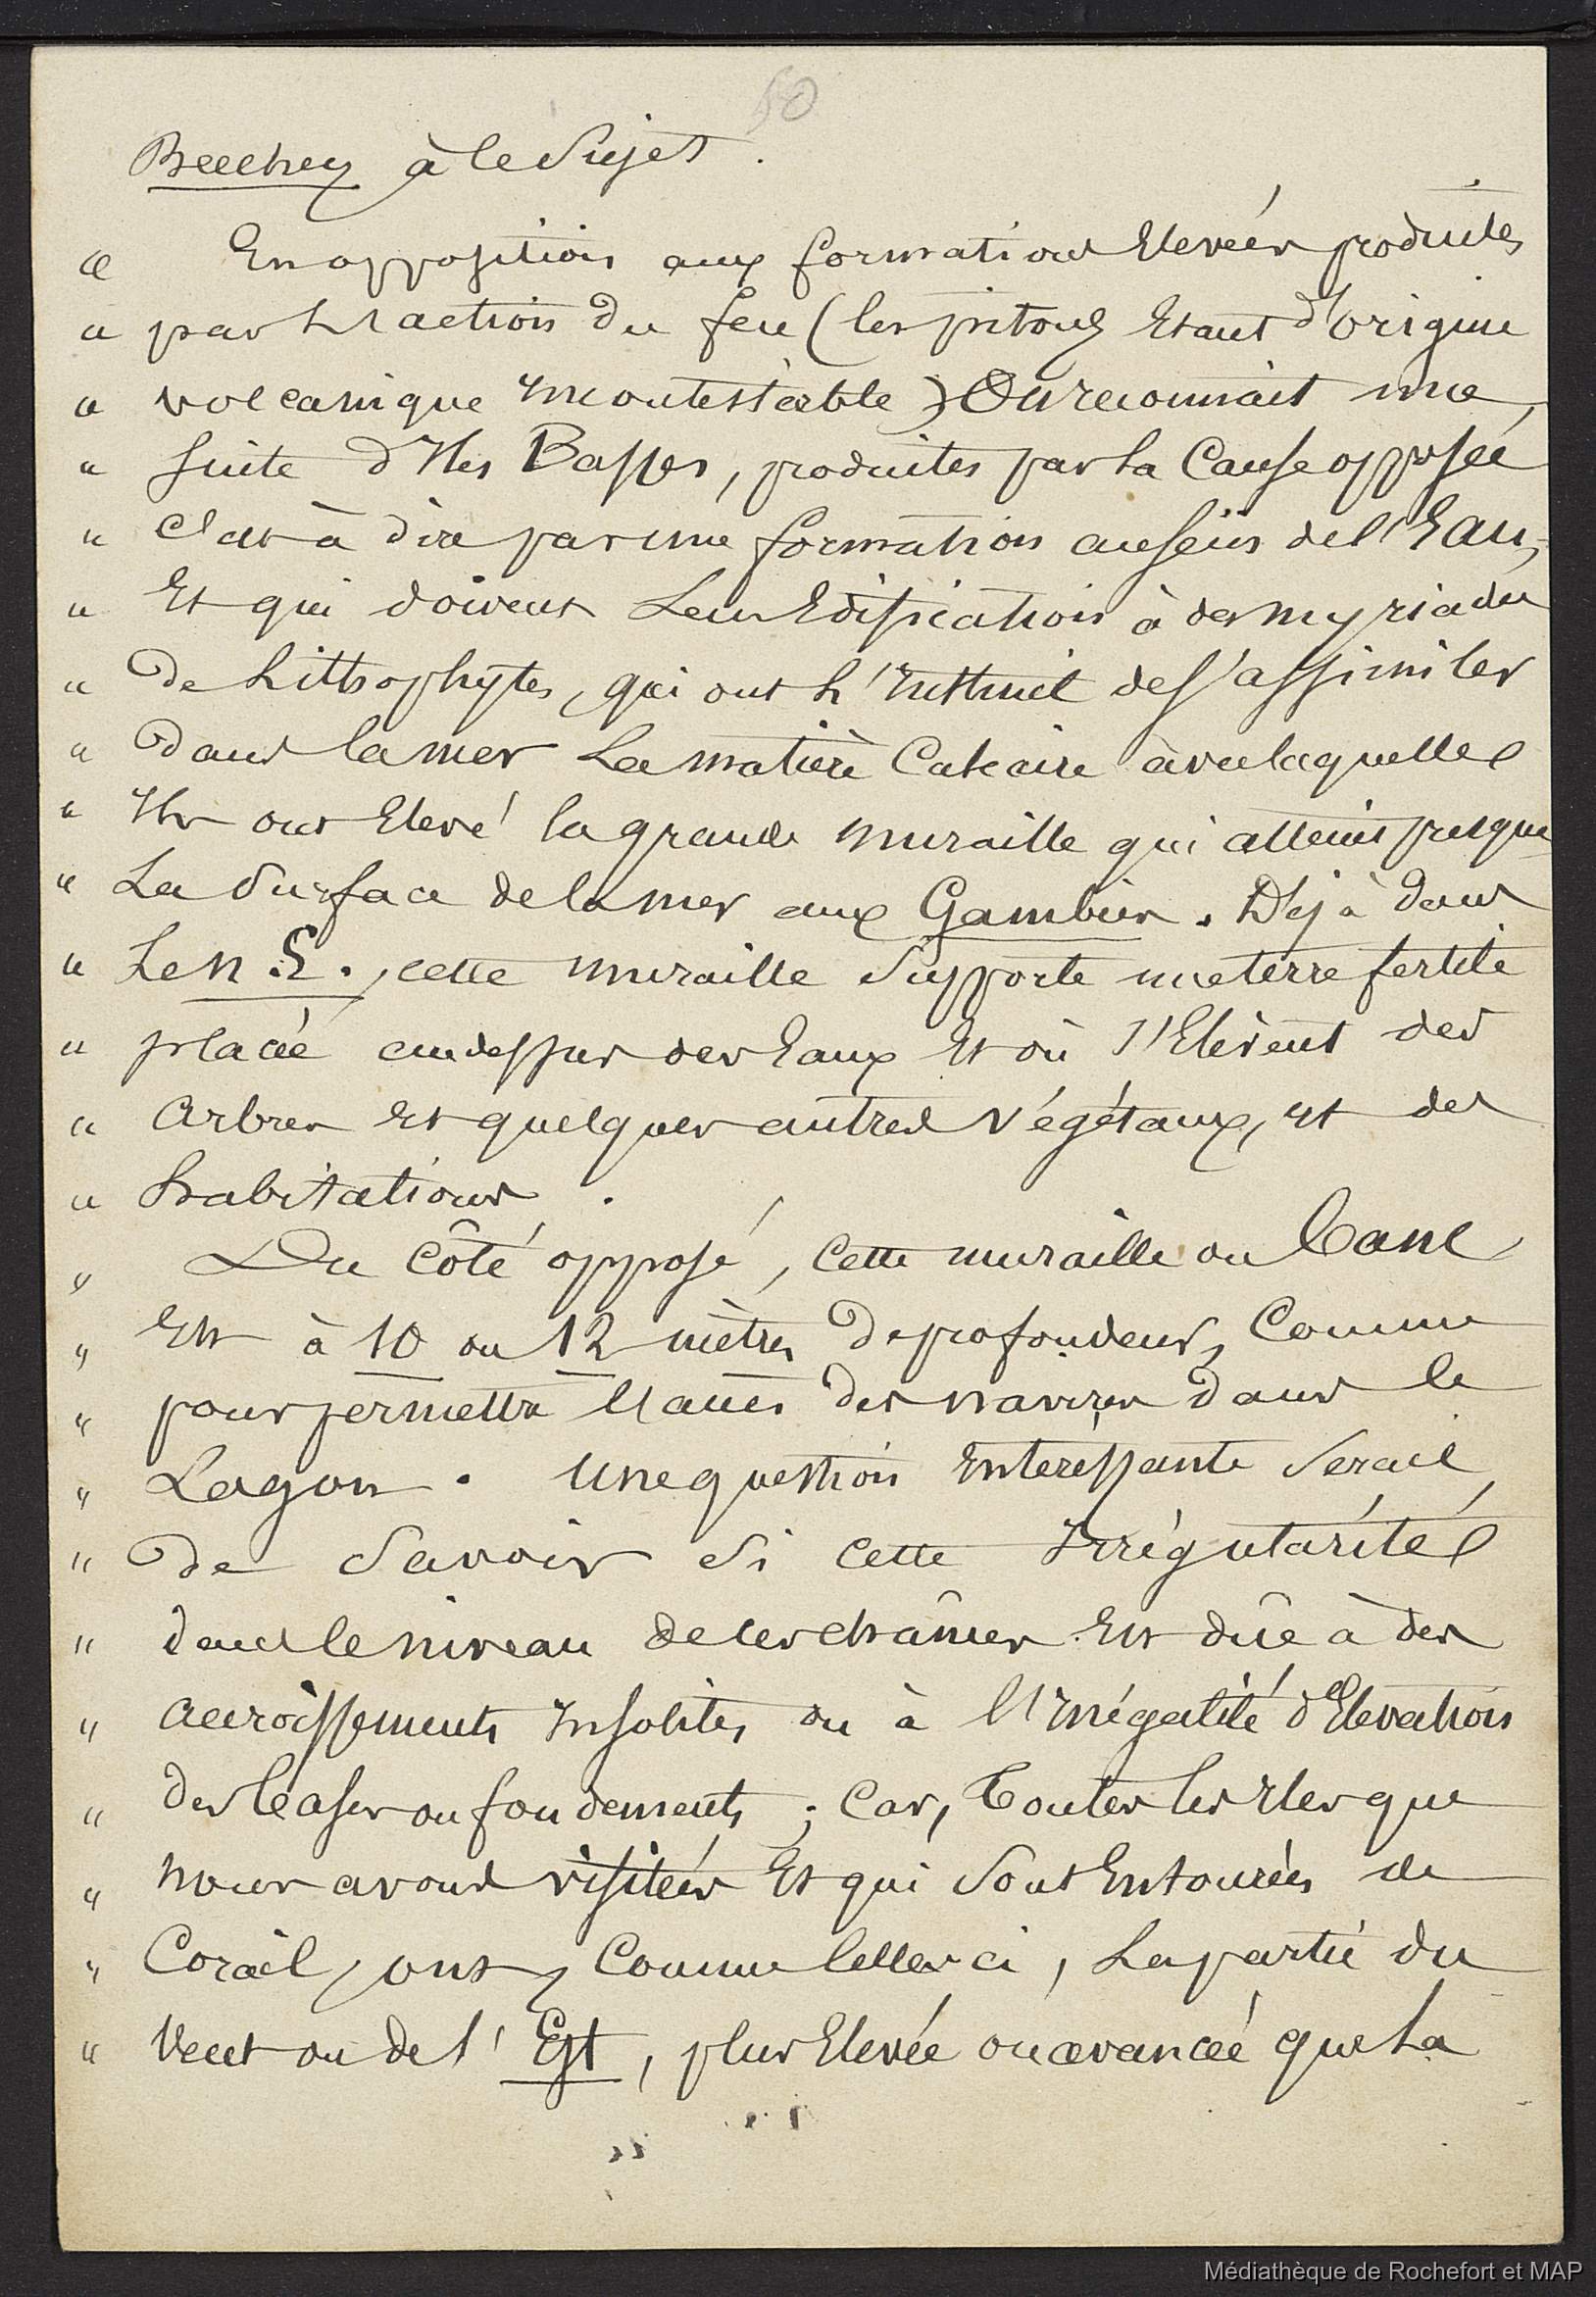 50
Beechey à ce Sujet.
" En opposition aux formations Elevées produites
" par L'action du feu (les pitons Etant d'origine
" volcanique Incontestable) On reconnait une
" Suite d'Iles Basses, produites par La Cause opposée
" C'est à dire par une formation au sein de l'Eau,
" Et qui doivent Leur Edification à des myriades
" De Lithophytes, qui ont L'Instinct de s'assimiler
" Dans la mer La matière Calcaire avec laquelle
" Ils ont Elevé la grande muraille qui atteint presque
" La Surface de la mer aux Gambier. Déjà dans
" Le N.E., cette muraille Supporte une terre fertile
" placée au dessus des Eaux Et où s'Elèvent des
" Arbres Et quelques autres Végétaux, Et des
" habitations.
" Du Côté opposé, Cette muraille ou banc
" Est à 10 ou 12 mètres De profondeur, Comme
" pour permettre l'accès des navires dans le
" Lagon. Une question Intéressante Serait
" De Savoir Si Cette Irrégularité
" dans le niveau de ces chaînes Est dûe à des
" accroissements Insolites ou à l'Inégalité d'Elevation
" des bases ou fondements; Car, toutes les Iles que
" nous avons visitées Et qui Sont Entourées de
" Corail, ont, Comme Celles ci, La partie du
" Vent ou de l'Est, plus Elevée ou avancée que La
Médiathèque de Rochefort et MAP